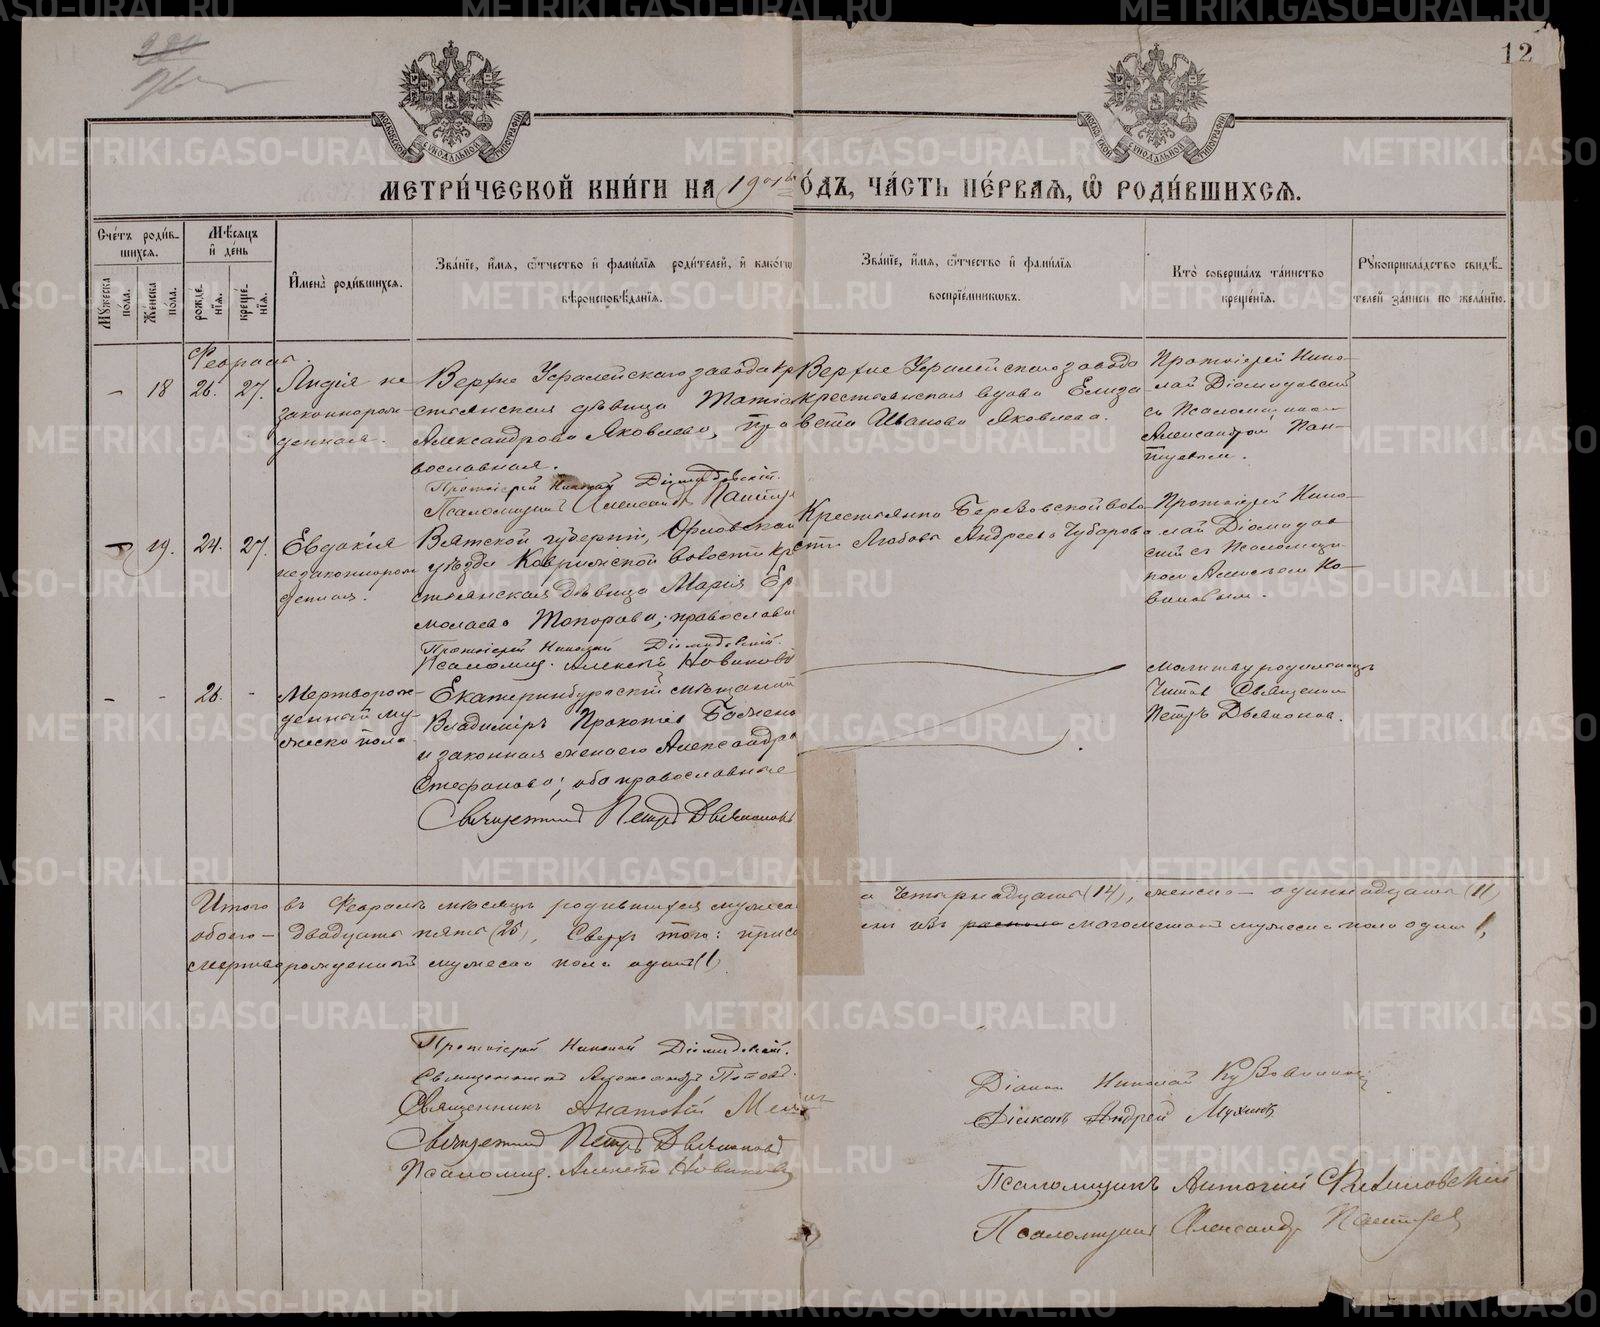 12
МОСКОВСКОЙ СѴНОДАЛЬНОЙ ТИПОГРАФІИ
МОСКОВСКОЙ СѴНОДАЛЬНОЙ ТИПОГРАФІИ
МЕТРИ́ЧЕСКОЙ КНИ́ГИ НА 1901 ГО́ДЪ, ЧА́СТЬ ПЕ́РВАЯ, Ѽ РОДИ́ВШИХСЯ.
Сче́тъ роди́вшихся.
Му́жеска по́ла.
Же́нска по́ла.
Мѣ́сяцъ и҆ де́нь
рожде́нїѧ.
креще́нїѧ.
И҆мена̀ роди́вшихся.
Зва́нїе, и҆́мя, ѻ҆́тчество и҆ фами́лїя роди́телей, и҆ како́гѡ
вѣроисповѣ́данїя.
Зва́нїе, и҆́мя, ѻ҆́тчество и҆ фами́лїя
воспрїе́мникѡвъ.
Кто̀ соверша́лъ та́инство
креще́нїя.
Рꙋкоприкла́дство свидѣ́-
телей за́писи по жела́нїю.
Февраль.
- 18 26. 27. Лидія не
законнорож-
денная.
Верхне Уфалейскаго завода кре
стьянская дѣвица Татіа
Александрова Яковлева, пра
вославная.
Протоіерей Николай Діомидовскій.
Псаломщикъ Александръ
Верхне Уфалейскаго завода
крестьянская вдова Елиза
вета Иванова Яковлева.
Протоіерей Нико-
лай Діомидовскій
съ Псаломщикомъ
Александромъ
19. 24. 27. Евдокія
незаконнорож
денная.
Вятской губерніи, Орловскаго
уѣзда волости кре
стьянская дѣвица Марія Ер
молаева Топорова; православн
Протоіерей Николай Діомидовскій.
Псаломщ. Алексѣй Новиковъ
Крестьянка Березовской воло
сти Любовь Андреева Чубарова
Протоіерей Нико-
лай Діомидов
скій съ Псаломщи
комъ Алексѣемъ Но-
виковымъ.
- - 26. - Мертворож-
денный му-
жеска пола
Екатеринбургскій мѣщанинъ
Владиміръ Прокопіевъ
и законная жена его Александра
Стефанова; оба православные
Священникъ Петръ
Молитву родильницѣ
читалъ Священникъ
Петръ
Итого въ Февралѣ мѣсяцѣ родившихся мужеска четырнадцать (14), женска - одиннадцать (11)
обоего - двадцать пять (25). Сверхъ того: изъ раскола магометанъ мужеска пола одинъ 1,
мертворожденный мужеска пола одинъ (1).
Протоіерей Николай Діомидовскій.
Священникъ Александръ Поповъ.
Священникъ Анатолій
Священникъ Петръ
Псаломщ. Алексѣй Новиковъ
Діаконъ Николай
Діаконъ Андрей Мухинъ
Псаломщикъ Антоній
Псаломщикъ Александръ
METRIKI.GASO-URAL.RU